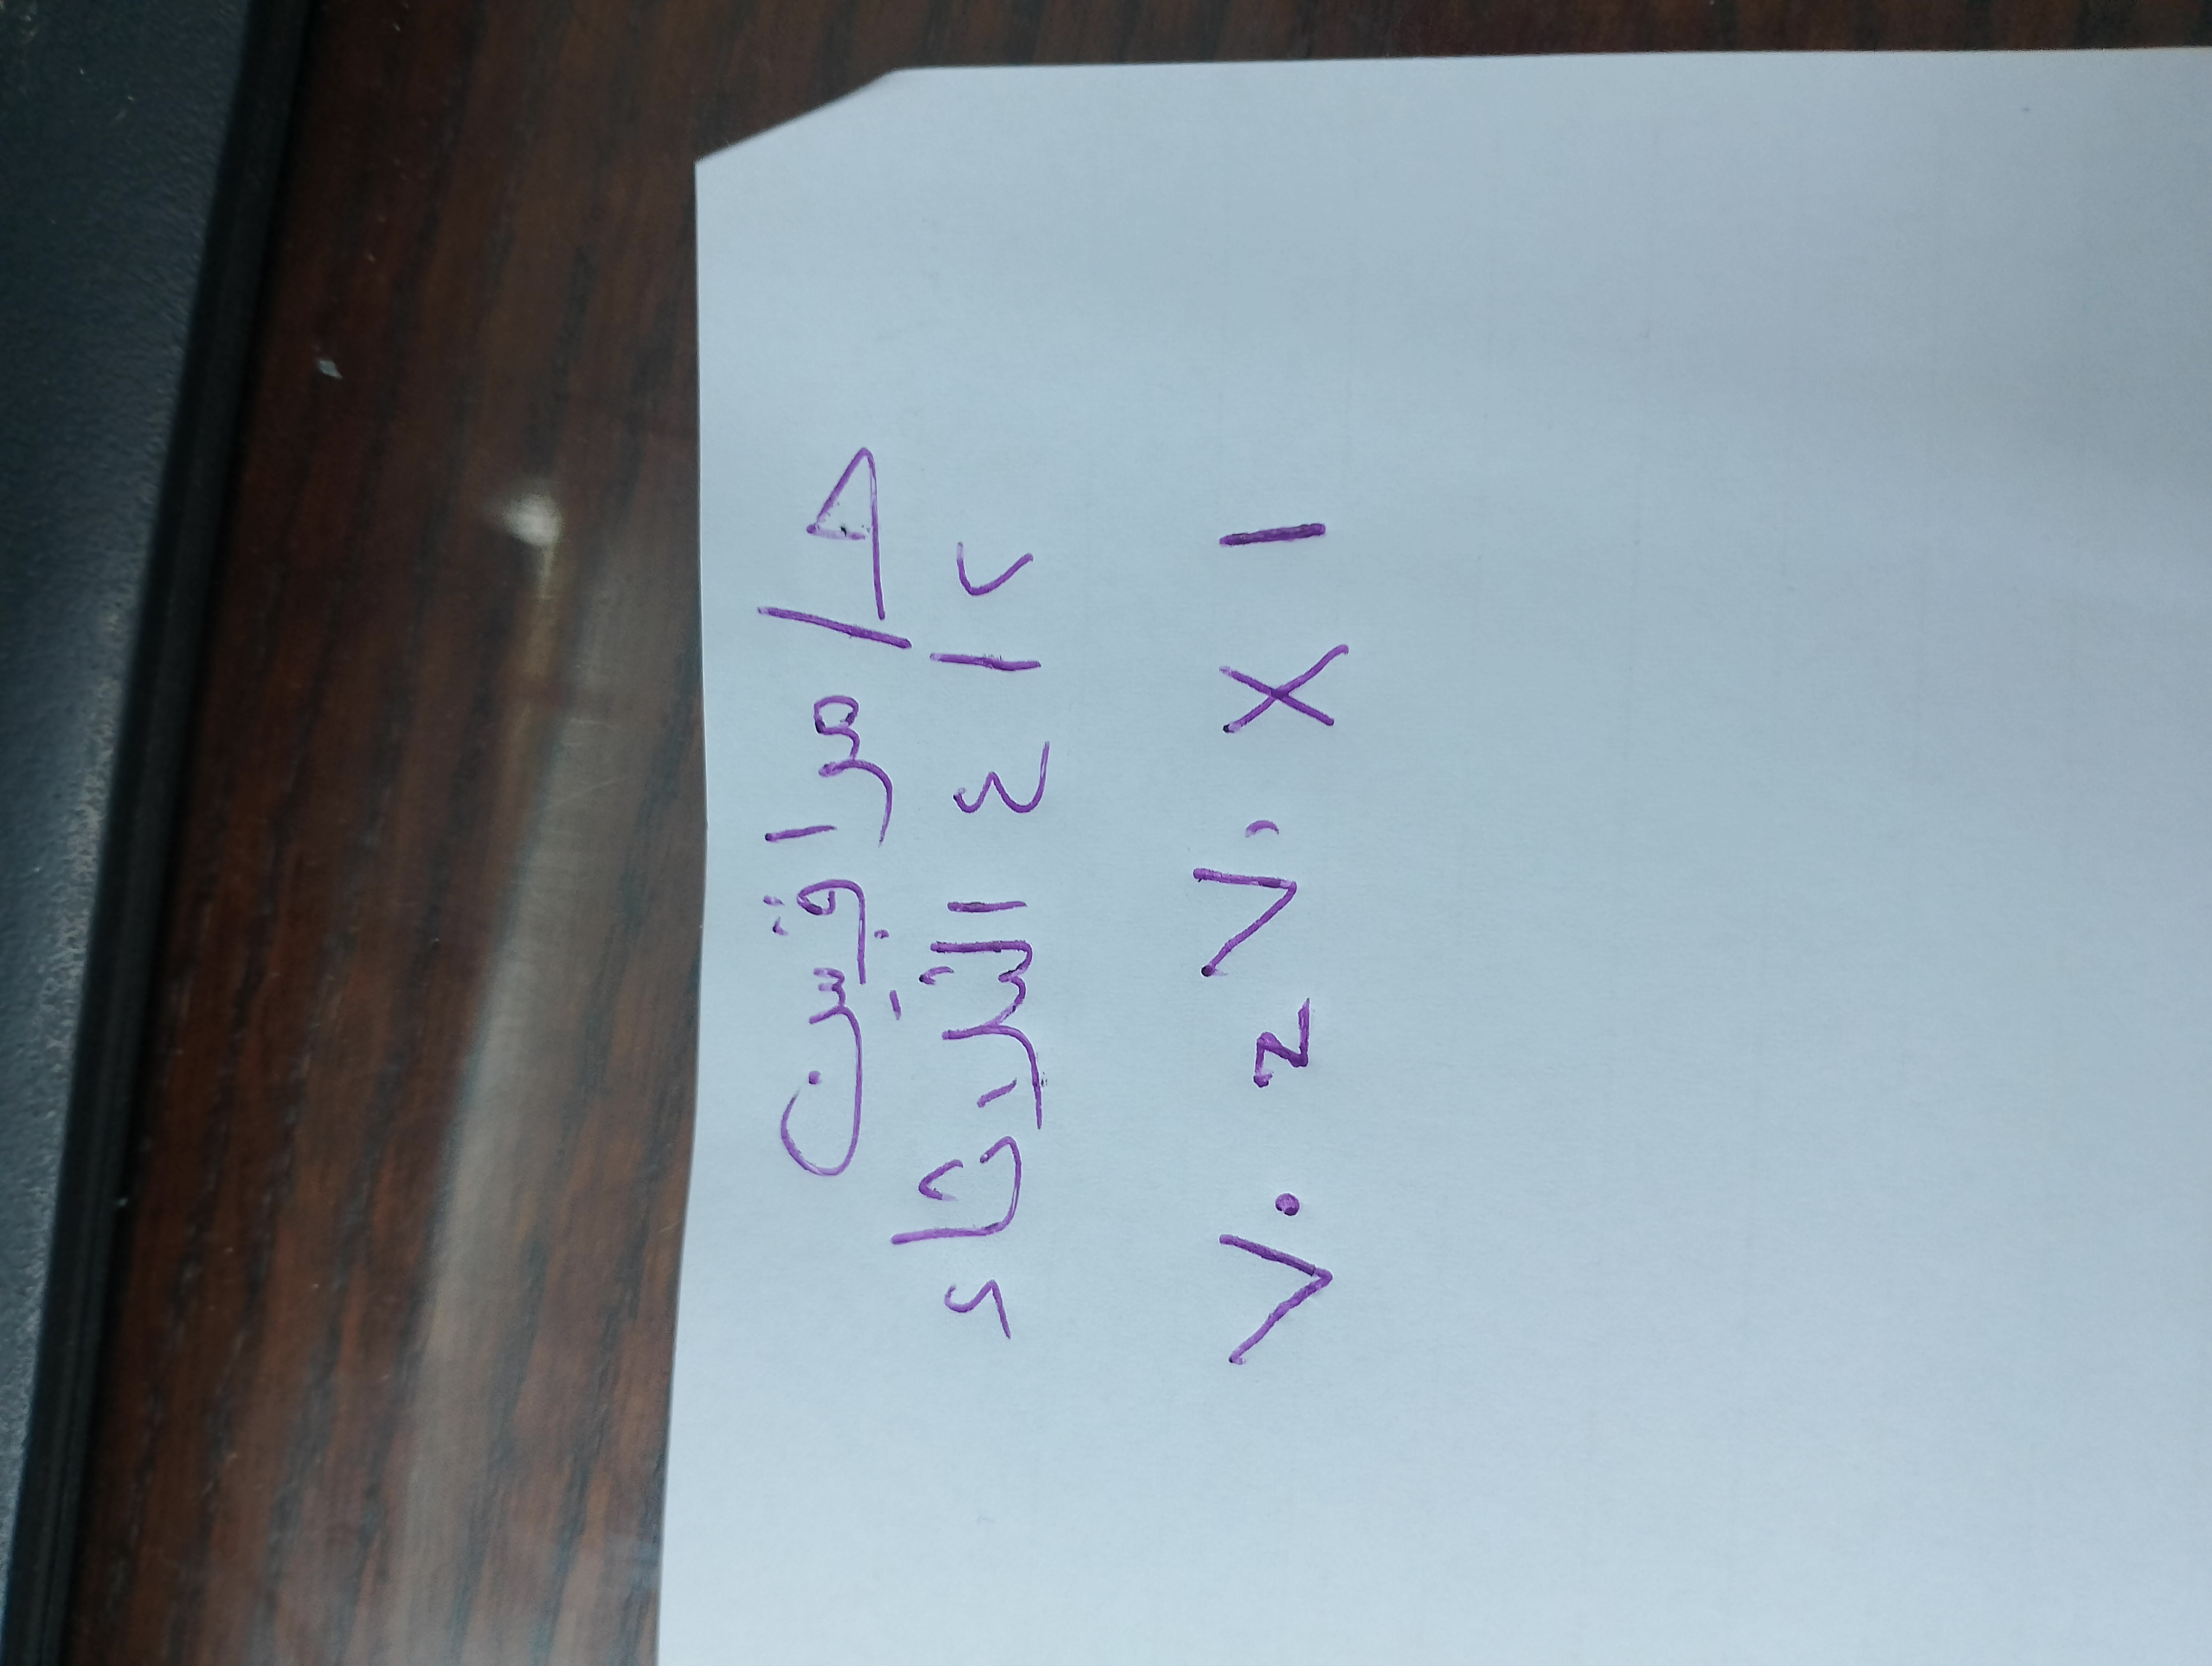 ح/ مراقبين
٢ / ٤ الثلاثاء
١ × ٧٠ = ٧٠